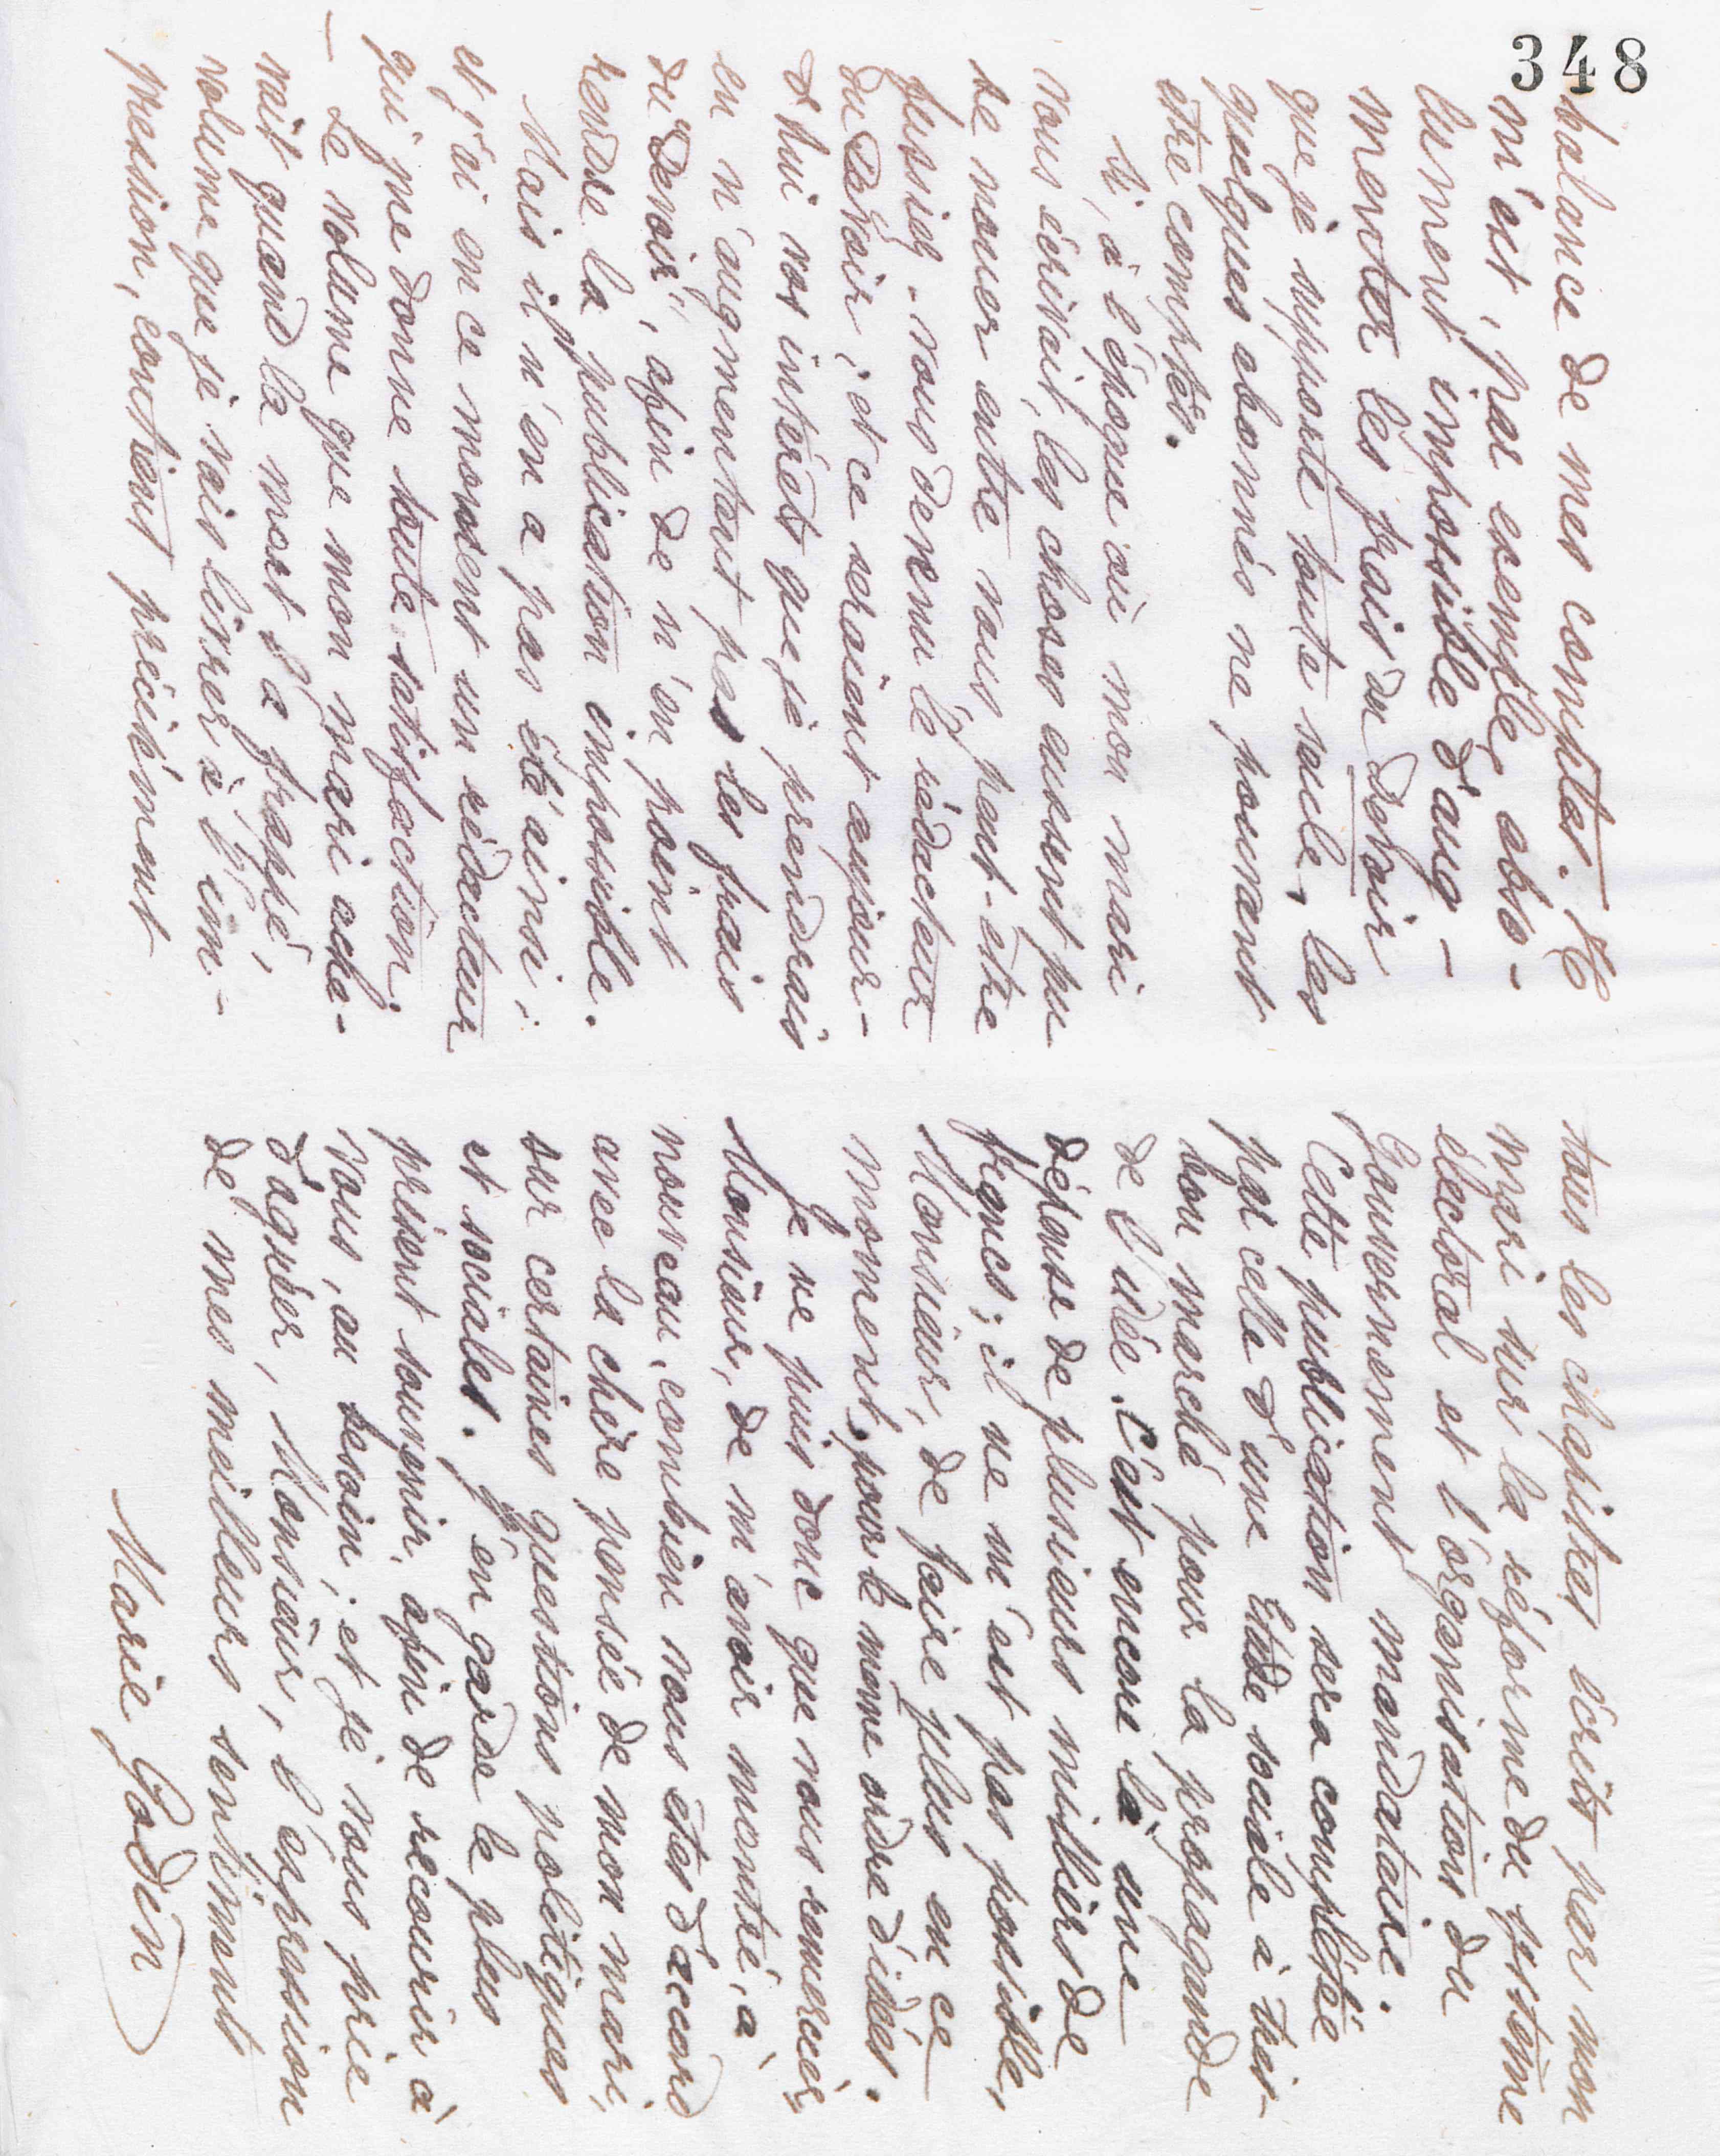 348
balance de mes comptes. Il
m'est, par exemple, abso-
lument impossible d'aug-
menter les frais du devoir
que je supporte toute seule, les
quelques abonnés ne pouvant
être comptés.
Si, à l'époque où mon mari
vous écrivait, les choses eussent pu
se nouer entre vous, peut-être
fussiez-vous devenu le rédacteur
du Devoir; et ce seraient aujour-
d'hui vos intérêts que je prendrais
en n'augmentant pas les frais
du "Devoir", afin de n'en point
rendre la publication impossible.
Mais il n'en a pas été ainsi;
et j'ai en ce moment un rédacteur
qui me donne toute satisfaction.
- Le volume que mon mari ache-
vait quand la mort l'a frappé,
volume que je vais livrer à l'im-
pression, contient précisément
tous les chapitres écrits par mon
mari sur la réforme du système
électoral et l'organisation du
Gouvernement mandataire.
Cette publication sera complétée
par celle d'une Etude sociale à très-
bon marché pour la propagande
de l'idée. C'est encore là une
dépense de plusieurs milliers de
francs; il ne m'est pas possible,
Monsieur, de faire plus en ce
moment, pour le même ordre d'idées.
Je ne puis donc que vous remercier,
Monsieur, de m'avoir montré, à
nouveau, combien vous êtes d'accord
avec la chère pensée de mon mari,
sur certaines questions politiques
et sociales. J'en garde le plus
présent souvenir, afin de recourir à
vous, au besoin; et je vous prie
d'agréer, Monsieur, l'expression
de mes meilleurs sentiments
Marie Godin